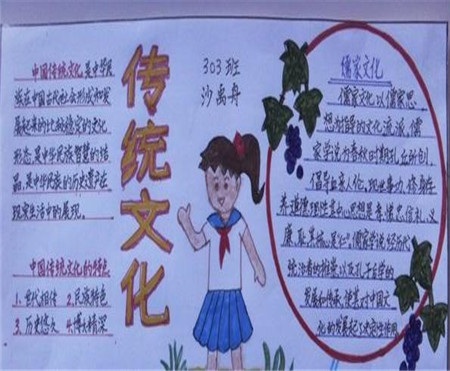 传统文化
303班
沙禹舟
中国传统文化是中华民
族在中国古代社会形成和发
展起来的比较稳定的文化
形态,是中华民族智慧的结
晶,是中华民族的历史遗产在
现实生活中的展现。
中国传统文化的特色
1.世代相传 2.民族特色
3.历史悠久 4.博大精深
儒家文化
儒家文化以儒家思
想为指导的文化流派,儒
家学说为春秋时期孔丘所创,
倡导血亲人伦、现世事功、修身存
养、道德理性,其中心思想是孝、悌、忠、信、礼、义
廉、耻,其核心是"仁"。儒家学说经历代
统治者的推崇,以及孔子后学的
发展和传承,使其对中国文
化的发展起了决定性作用